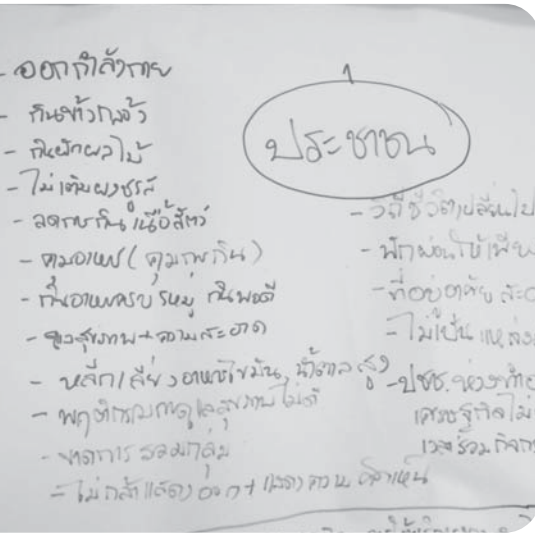 ประชาชน
- ออกกำลังกาย
- กินข้าวกล้อง
- กินผักผลไม้
- ไม่เติมผงชูรส
- ลดการกินเนื้อสัตว์
- คุมอาหาร (คุมการกิน)
- กินอาหารครบ 5 หมู่ กินพอดี
- สุขภาพ + ความสะอาด
- หลีกเลี่ยงอาหารไขมัน, น้ำตาลสูง
- พฤติกรรมการดูแลสุขภาพไม่ดี
- ขาดการรวมกลุ่ม
- ไม่กล้าแสดงออก + แสดงความคิดเห็น
- วิถีชีวิตเปลี่ยนไป
- พักผ่อนให้เพียง
- ที่อยู่อาศัย สะอ
- ไม่เป็นแหล่ง
- ปชช.
เศรษฐกิจไม่